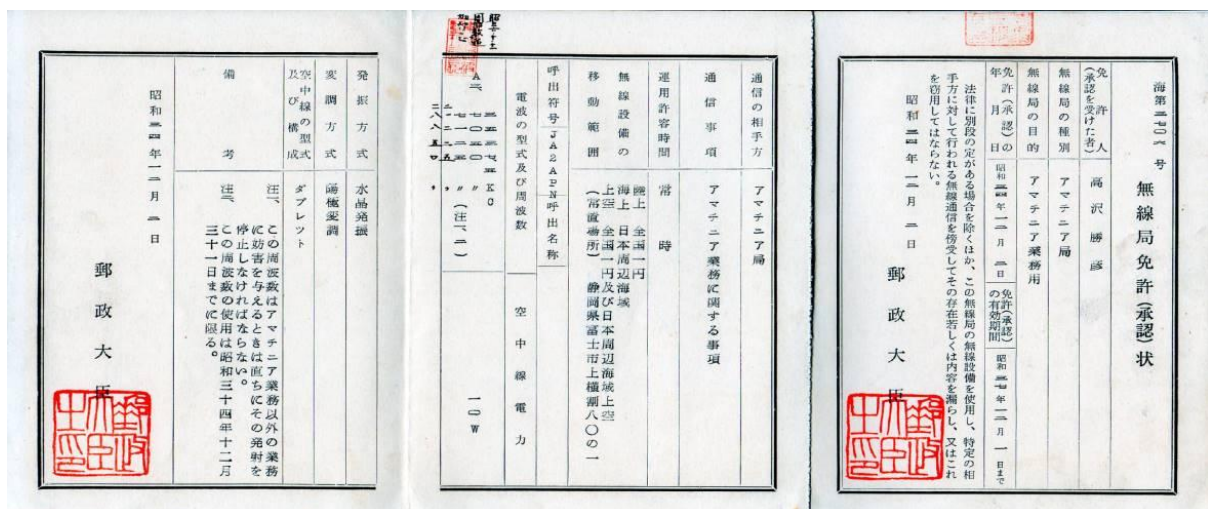 海第二七〇六号
無線局免許(承認)状
免許人
(承認を受けた者)
高沢勝彦
無線局の種別
アマチユア局
無線局の目的
アマチユア業務用
免許(承認)の
年月日
昭和三四年一二月二日
免許(承認)
の有効期間
昭和三七年一二月一日まで
法律に別段の定がある場合を除くほか、この無線局の無線設備を使用し、特定の相
手方に対して行われる無線通信を傍受してその存在若しくは内容を漏らし、又はこれ
を窃用してはならない。
昭和三四年一二月二日
郵政大臣
通信の相手方
アマチユア局
通信事項
アマチユア業務に関する事項
運用許容時間
常時
無線設備の
移動範囲
陸上 全国一円
海上 日本周辺海域
上空 全国一円及び日本周辺海域上空
(常置場所) 静岡県富士市上横割八〇の一
呼出符号
JA2APN
呼出名称
電波の型式及び周波数
空中線電力
三五〇〇
KC
七〇五〇 〃
(注一、二)
一〇W
発振方式
水晶発振
変調方式
陽極変調
空中線の型式
及び構成
ダブレツト
備考
注一、この周波数はアマチユア業務以外の業務
に妨害を与えるときは直ちにその発射を
停止しなければならない。
注二、この周波数の使用は昭和三十四年十二月
三十一日までに限る。
昭和三四年一二月二日
郵政大臣